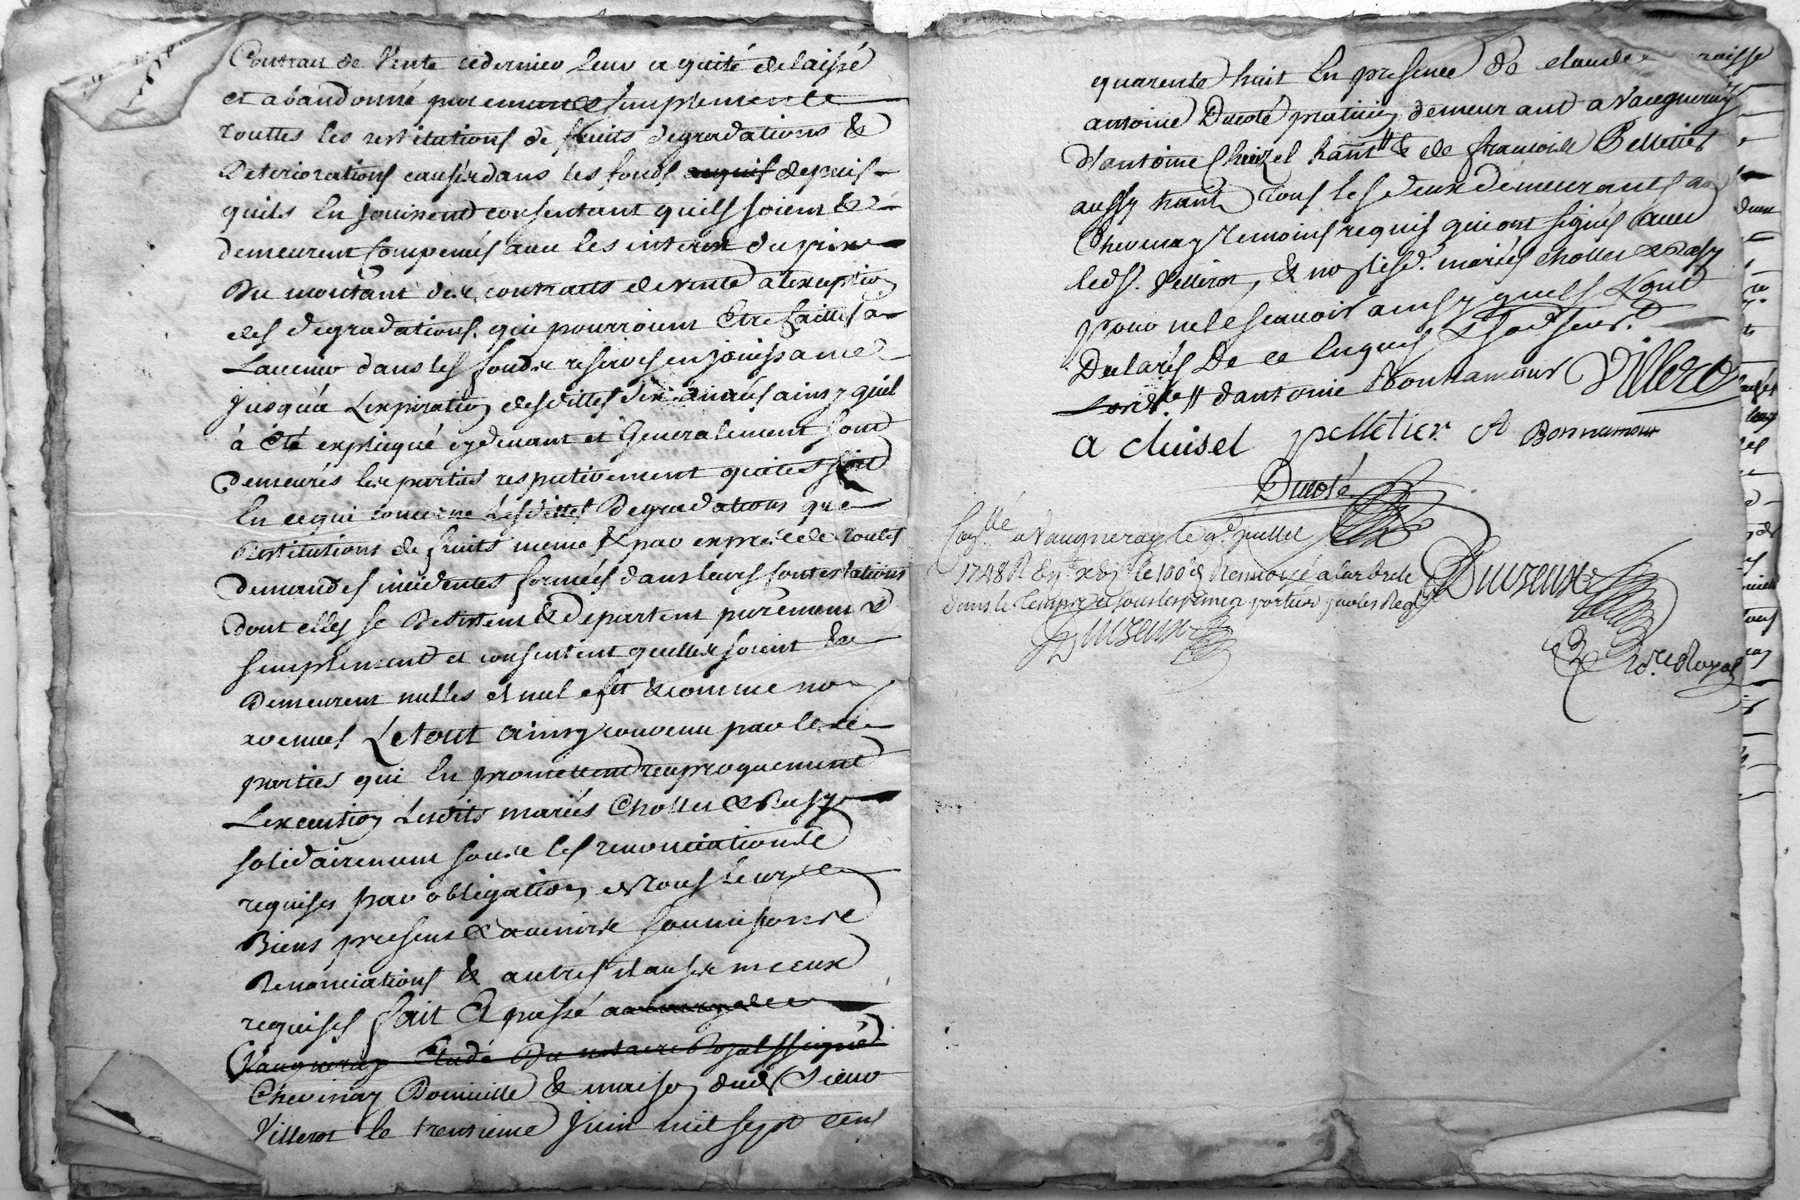 Contrau de Vente cedernier leur a quité delaissé
et abandonné purement & simplement
touttes les restitutions de fruits degradations &
Deteriorations causés dans les fonds depuis
quils En jouissent consentant quils soient &
demeurent compensés avec les interets du prix
Du montant des contratts de vente a lexception
des degradations qui pourroient Etre faittes a
Lavenir dans les fonds reservés en jouissance
Jusqu'a Lexpiration desdittes dix années ainsy quil
à été expliqué cydevant et Generalement sont
Demeurés les parties respectivement quites soit
En cequi concerne Lesdittes Degradations que
Restitutions de fruits meme & par exprés de toutes
demandes incidentes formées dans leurs contestations
dont elles se Desistent & departent purement &
simplement et consentent quelles soient &
Demeurent nulles et nul effet & comme non
avenues Le tout ainsy convenu par les
parties qui En promettent reciproquement
Lexecution Lesdits mariés Chollet & Rasy
solidairement sous les renonciations
requises par obligation de tous leurs
Biens presens & avenir soumissions
Renonciations & autres clauses meeux
requises fait & passé
Vaugneray Etude du notaire Royal ssigné
Chevinay Domicille & maison dud. Sieur
Villerot le trensieme Juin mil sept cens
quarente huit En presence de claude
antoine Ducoté praticien demeurant a Vaugneray
d'antoine Chuizel hant & de francois Pelletier
aussy hant tous les deux demeurants aud.
Chevenay temoins requis qui ont signés avec
led. s. Villerot, & non lesd. mariés chollet & Rasy
pour ne le scavoir ainsy quils l'ont
Declarés De ce Enquis
d'antoine Bonnamour Villero
a chuisel pelletier A Bonnamour
Ducoté
Con.lle a Vaugneray le 9e juillet
1748 R
dans le temps et sous les peines portées par les Regl.
Duvzeux
Duvzeux
No.re Royal